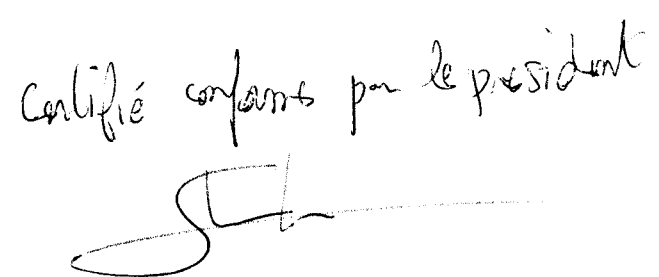 Certifié conforme par le président